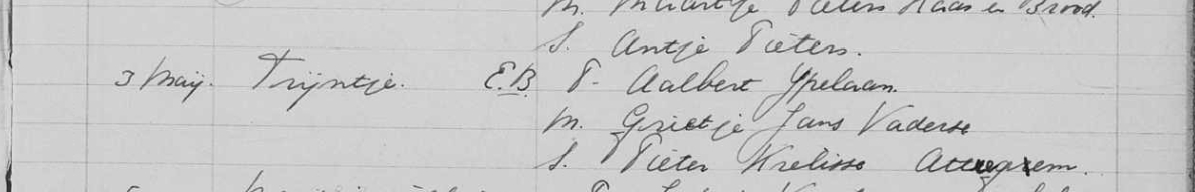 M. Maartje Pieters Kaas en Brood.
S. Antje Pieters.
3 Maij. Trijntje. E.B. P. Aalbert Ypelaan.
M. Grietje Jans Vaderse
S. Pieter Krelisse